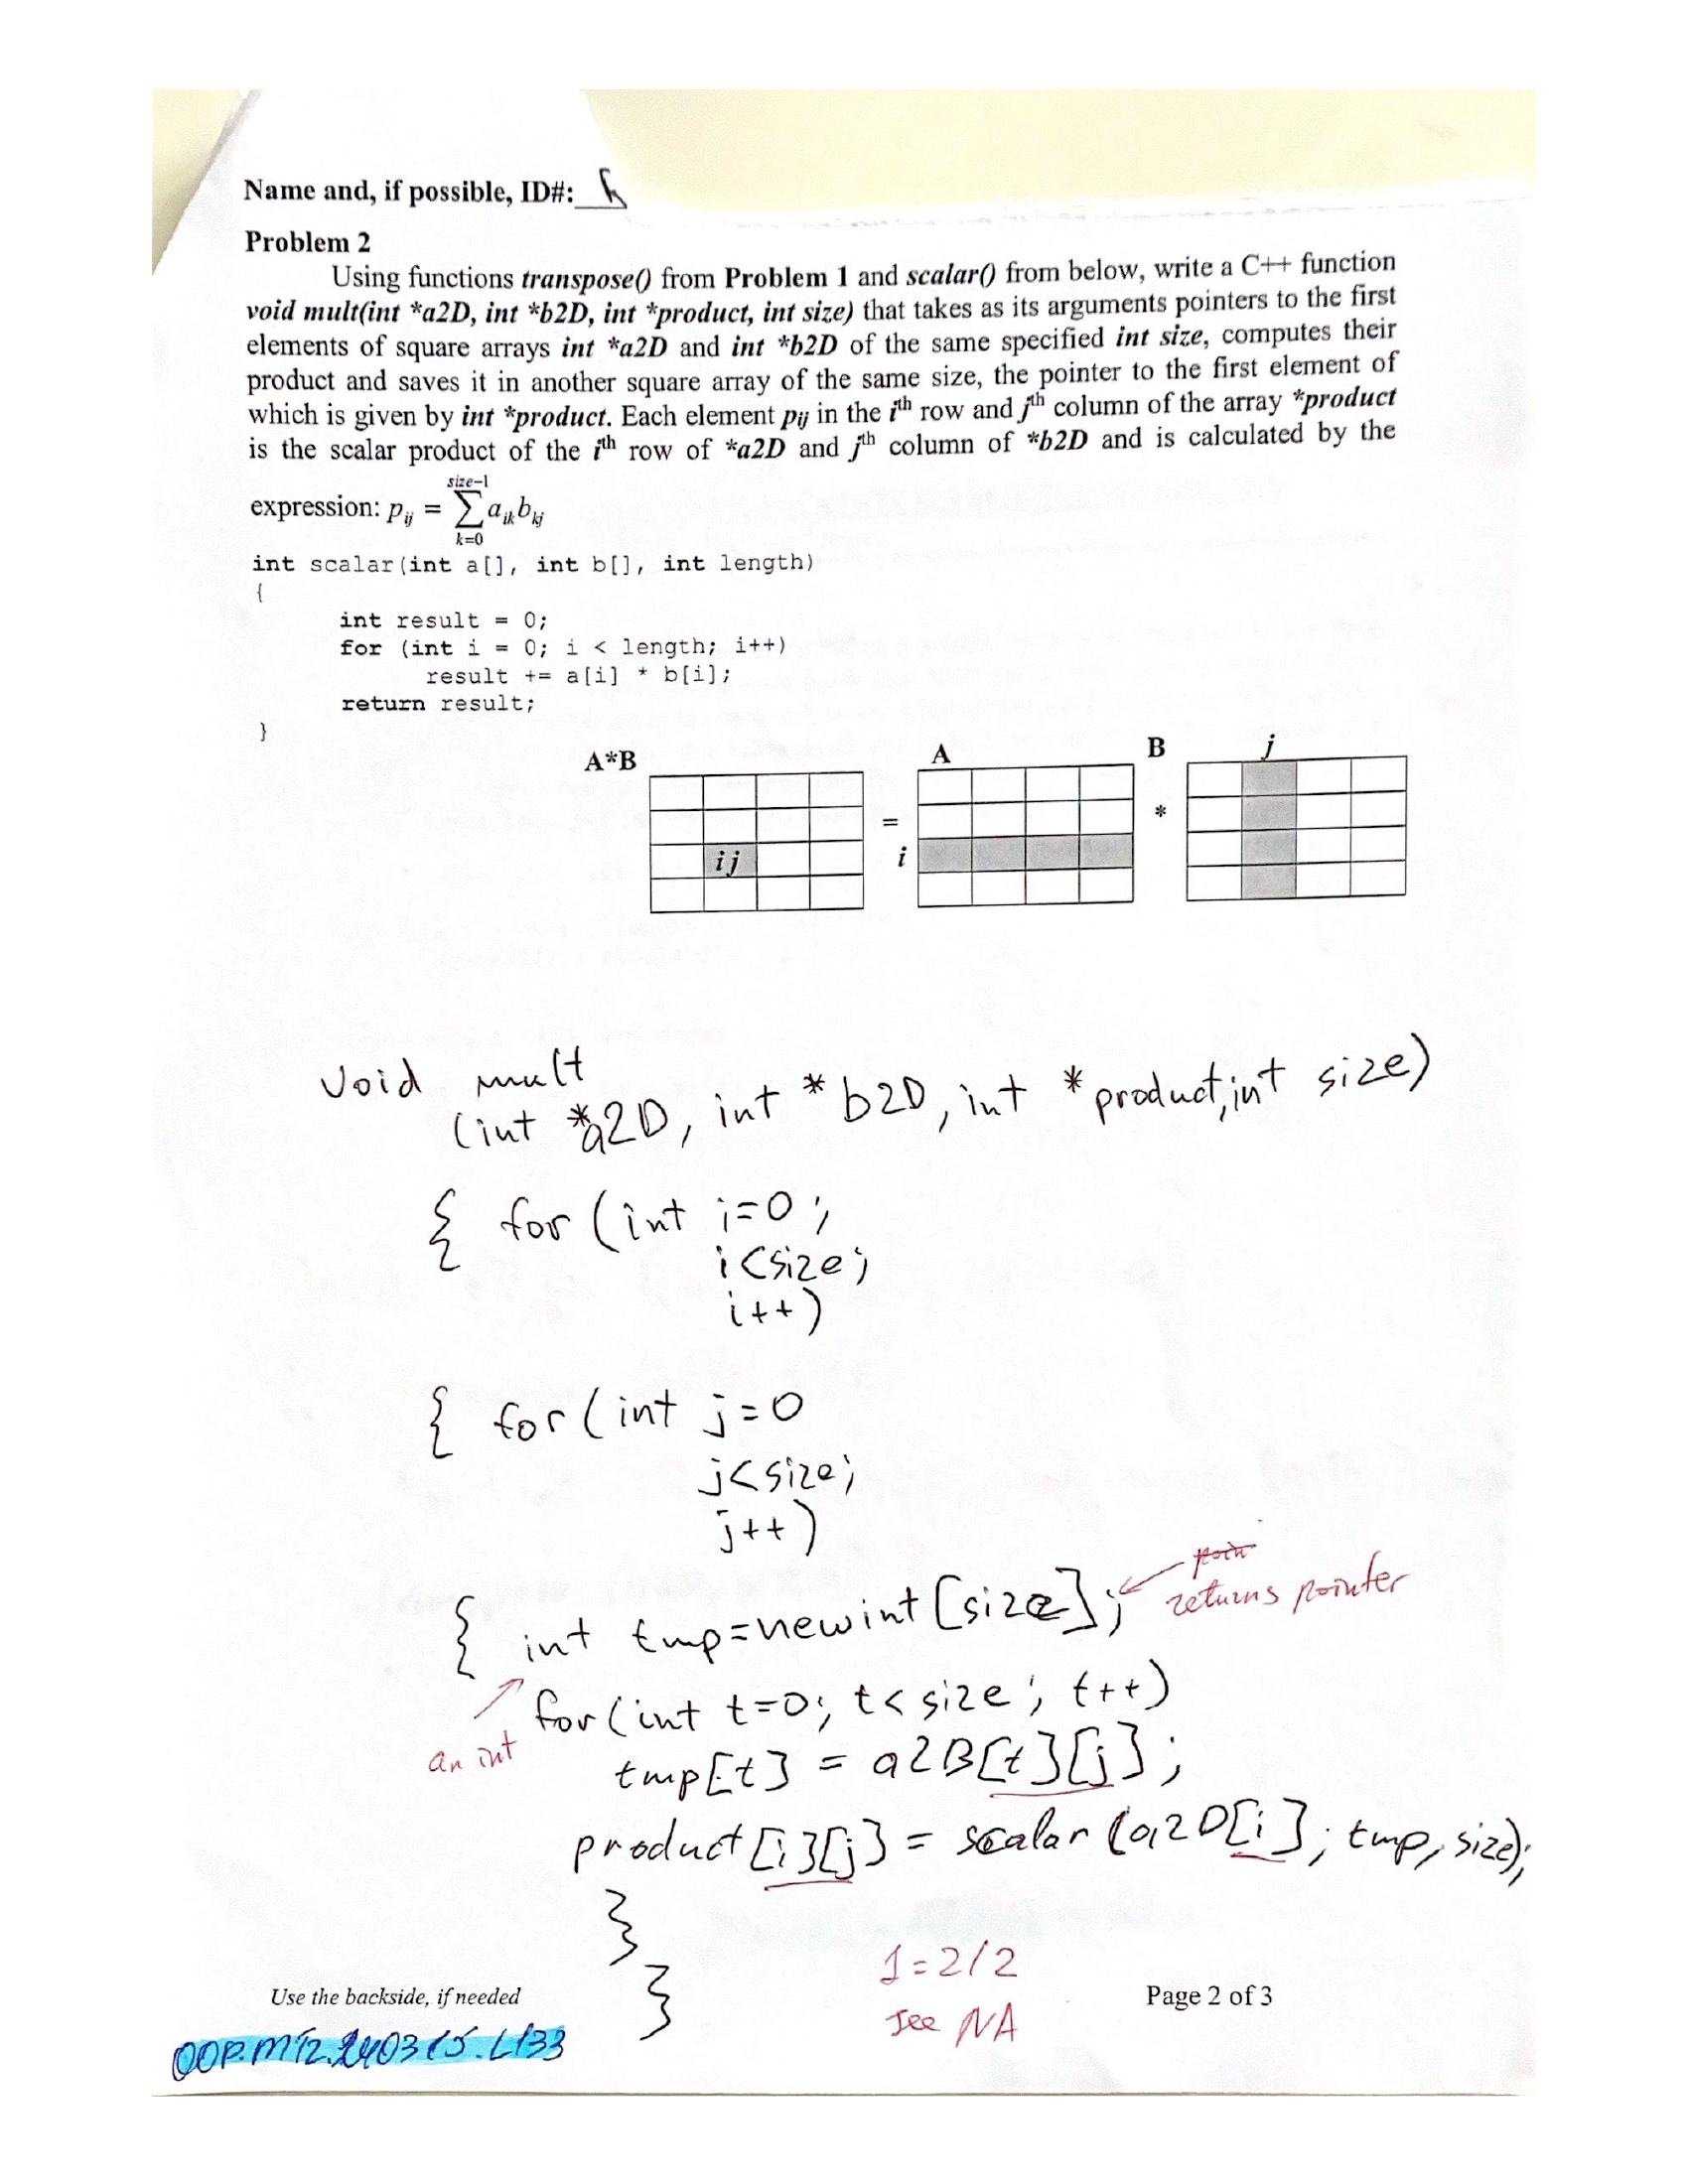 Name and, if possible, ID#:
Problem 2
Using functions transpose() from Problem 1 and scalar() from below, write a C++ function
void mult(int *a2D, int *b2D, int *product, int size) that takes as its arguments pointers to the first
elements of square arrays int *a2D and int *b2D of the same specified int size, computes their
product and saves it in another square array of the same size, the pointer to the first element of
which is given by int *product. Each element pij in the ith row and jth column of the array *product
is the scalar product of the ith row of *a2D and jth column of *b2D and is calculated by the
size-1
expression: pij = ∑ aik bkj
k=0
int scalar(int a[], int b[], int length)
{
int result = 0;
for (int i = 0; i < length; i++)
result += a[i] * b[i];
return result;
}
A*B A B j
= *
ij i
void mult
(int *a2D, int *b2D, int *product, int size)
{ for (int i=0;
i<size;
i++)
{ for (int j=0
j<size;
j++)
returns pointer
{ int tmp=newint[size];
for(int t=0; t<size; t++)
an int
tmp[t] = a2B[t][j];
product[i][j] = scalar(a2D[i]; tmp, size);
}
}
1=2/2
See NA
Use the backside, if needed
Page 2 of 3
OOP.MT2.240315.L133